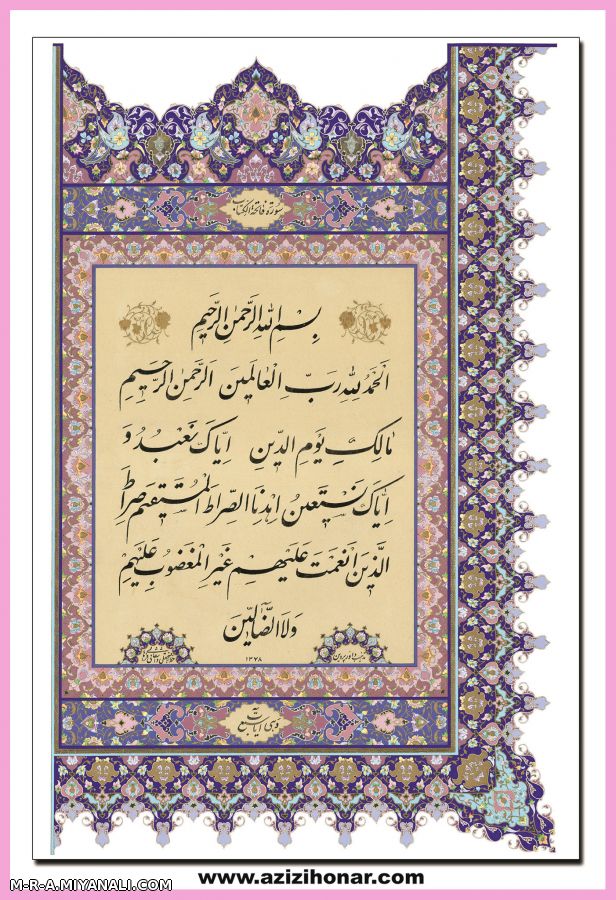 سورة فاتحة الكتاب
بسم الله الرحمن الرحيم
الحمد لله رب العالمين الرحمن الرحيم
مالك يوم الدين اياك نعبد و
اياك نستعين اهدنا الصراط المستقيم صراط
الذين انعمت عليهم غير المغضوب عليهم
ولا الضالين
۱۳۷۸
و هى سبع آيات
www.azizihonar.com
M-R-A.MIYANALI.COM